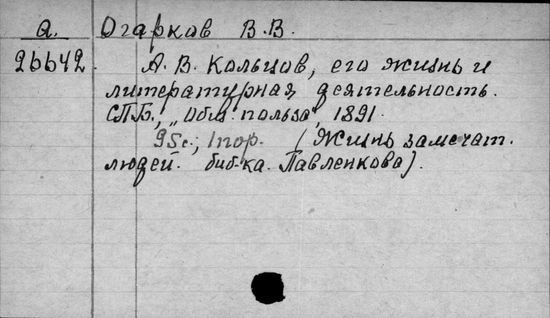 а. Огарков В.В.
26642. А. В. Кольцов, его жизнь и
литературная деятельность.
СПБ, „Общ. польза", 1891.
95с.; 1 пор. (Жизнь замечат.
людей. биб-ка Павленкова).